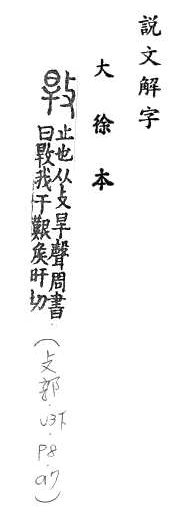 説文解字
大徐本
㪋
止也从攴旱聲周書
曰㪋我于艱矦旰切
（攴部．3下．P8．a7）